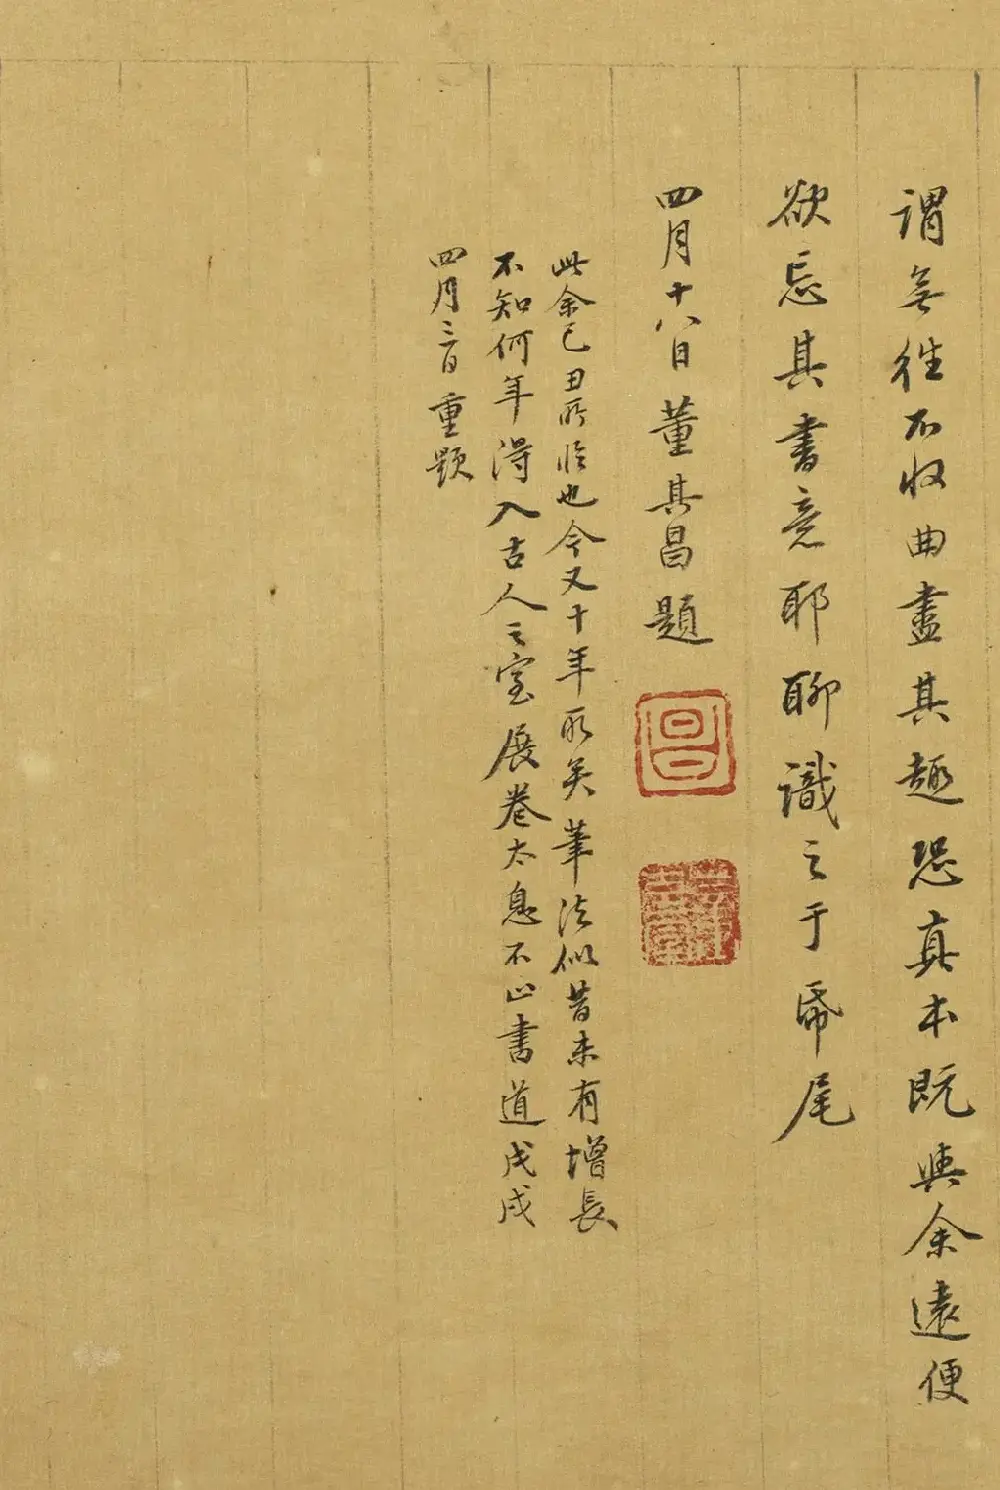 謂無往不收曲盡其趣恐真本既與余遠便
欲忘其書意耶聊識之于帋尾
四月十八日董其昌題
昌
此余己丑所臨也今又十年所矣筆法似昔未有增長
不知何年得入古人之室展卷太息不止書道戊戌
四月三日重題